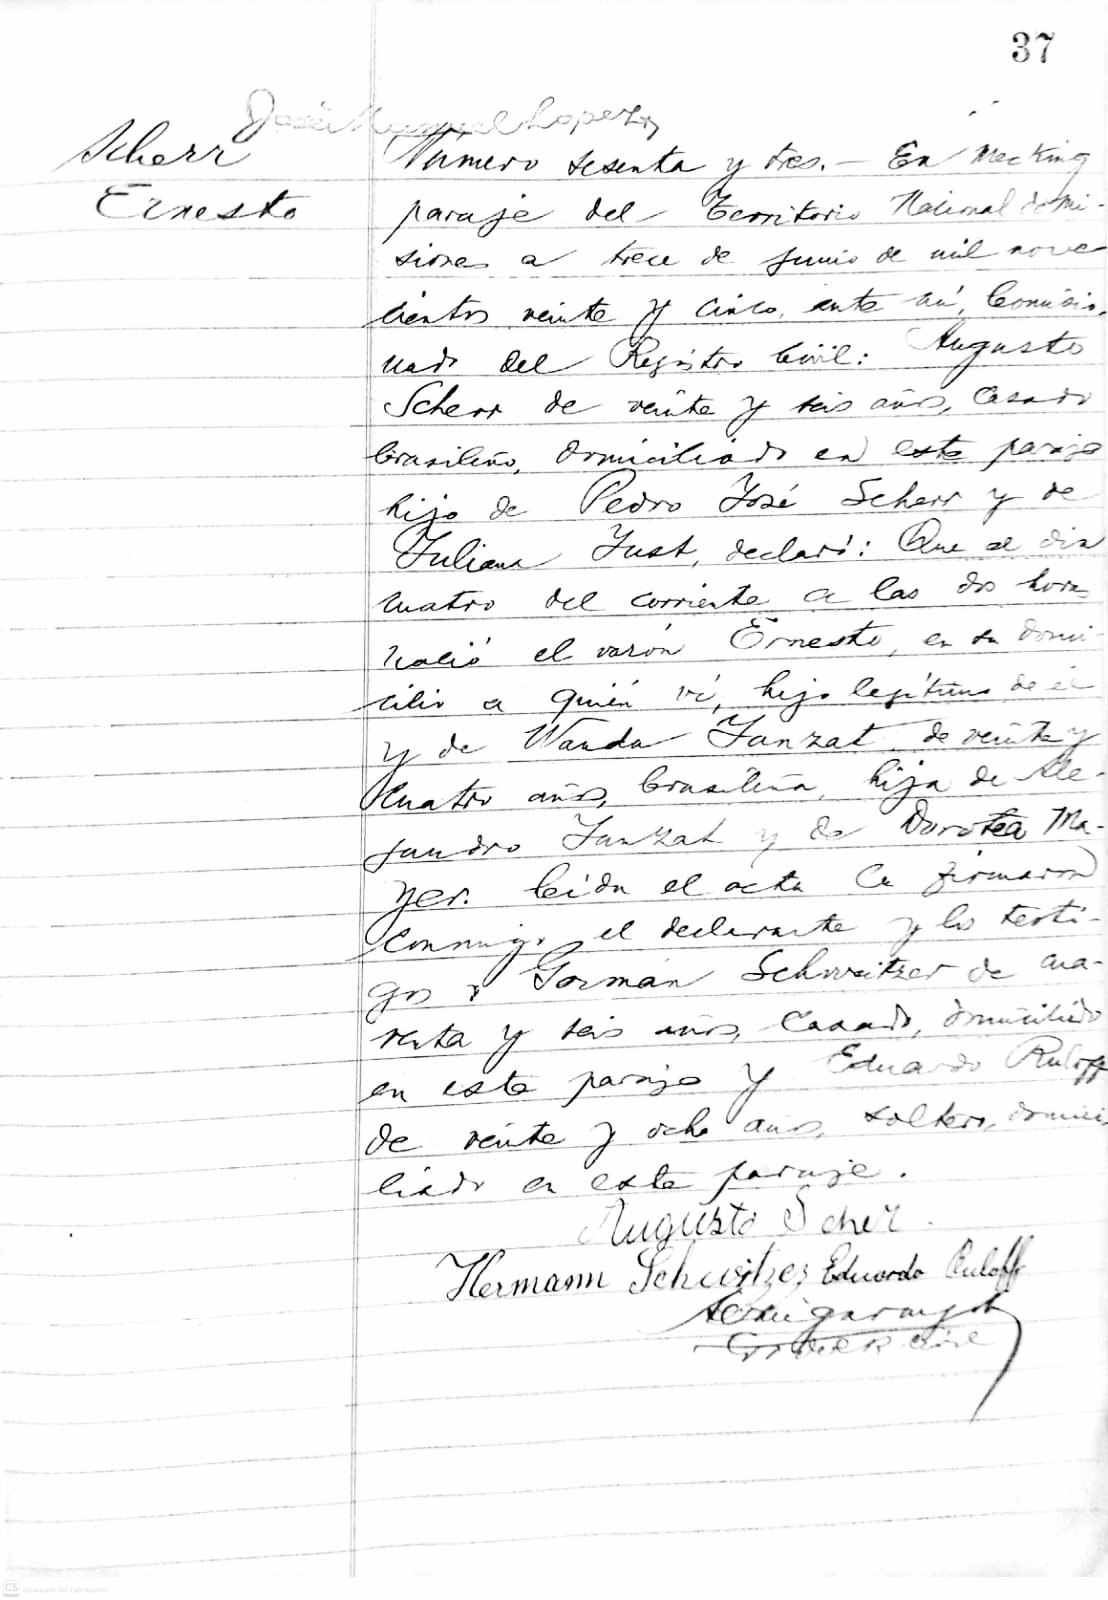 37
José Manuel Lopez
Scherr
Ernesto
Número sesenta y tres. – En Mecking
paraje del Territorio Nacional de Mi-
siones a trece de junio de mil nove
cientos veinte y cinco, ante mí, Comisio-
nado del Registro Civil: Augusto
Scherr de veinte y seis años, casado
brasileño, domiciliado en este paraje
hijo de Pedro José Scherr y de
Juliana Just, declaró: Que el dia
cuatro del corriente a las dos horas
nació el varón Ernesto, en su domi-
cilio a quién ví, hijo legítimo de él
y de Wanda Janzat de veinte y
cuatro años, brasileña, hija de Ale-
jandro Janzat y de Dorotea Ma-
yer. Leída el acta la firmaron
conmigo el declarante y los testi-
gos Germán Schweitzer de cua-
renta y seis años, casado, domiciliado
en este paraje y Eduardo Ruloff
de veinte y ocho años, soltero, domici
liado en este paraje.
Augusto Scher.
Hermann Schwitzer Eduardo Ruloff
CS Escaneado con CamScanner